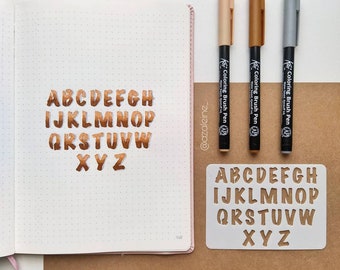 ABCDEFGH
IJKLMNOP
QRSTUVW
XYZ
Coloring Brush Pen
Coloring Brush Pen
Coloring Brush Pen
ABCDEFGH
IJKLMNOP
QRSTUVW
XYZ